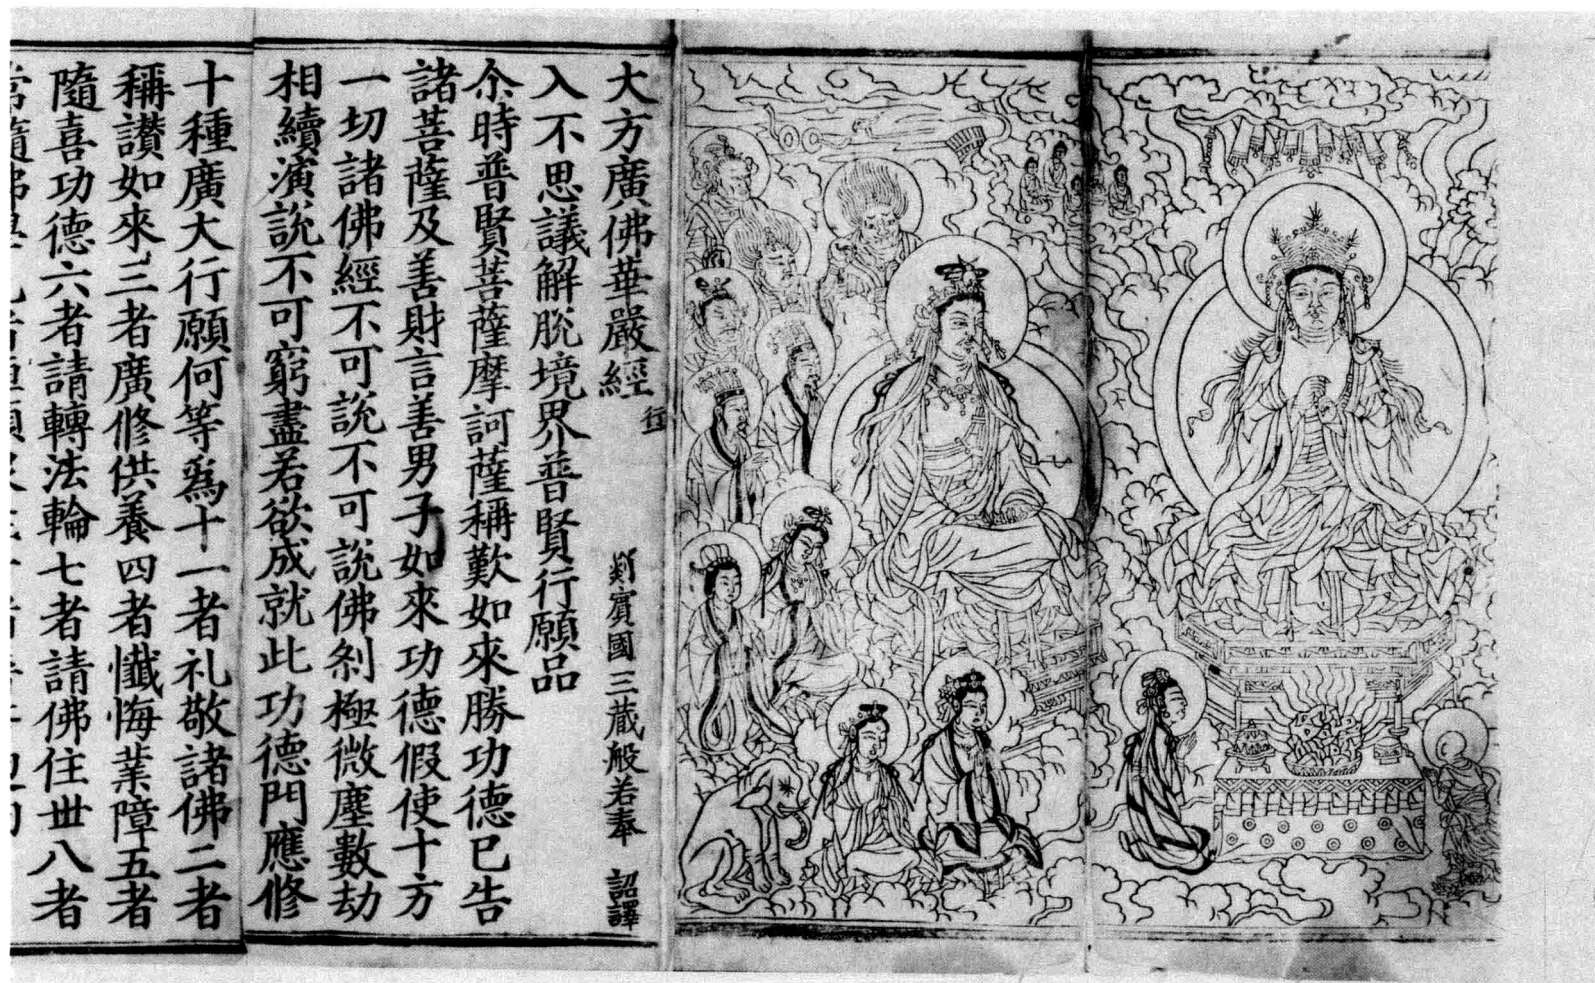 大方廣佛華嚴經
罽賓國三藏般若奉 詔譯
入不思議解脫境界普賢行願品
尒時普賢菩薩摩訶薩稱歎如來勝功德已告
諸菩薩及善財言善男子如來功德假使十方
一切諸佛經不可說不可說佛剎極微塵數劫
相續演說不可窮盡若欲成就此功德門應修
十種廣大行願何等為十一者礼敬諸佛二者
稱讃如來三者廣修供養四者懺悔業障五者
隨喜功德六者請轉法輪七者請佛住世八者
常隨佛